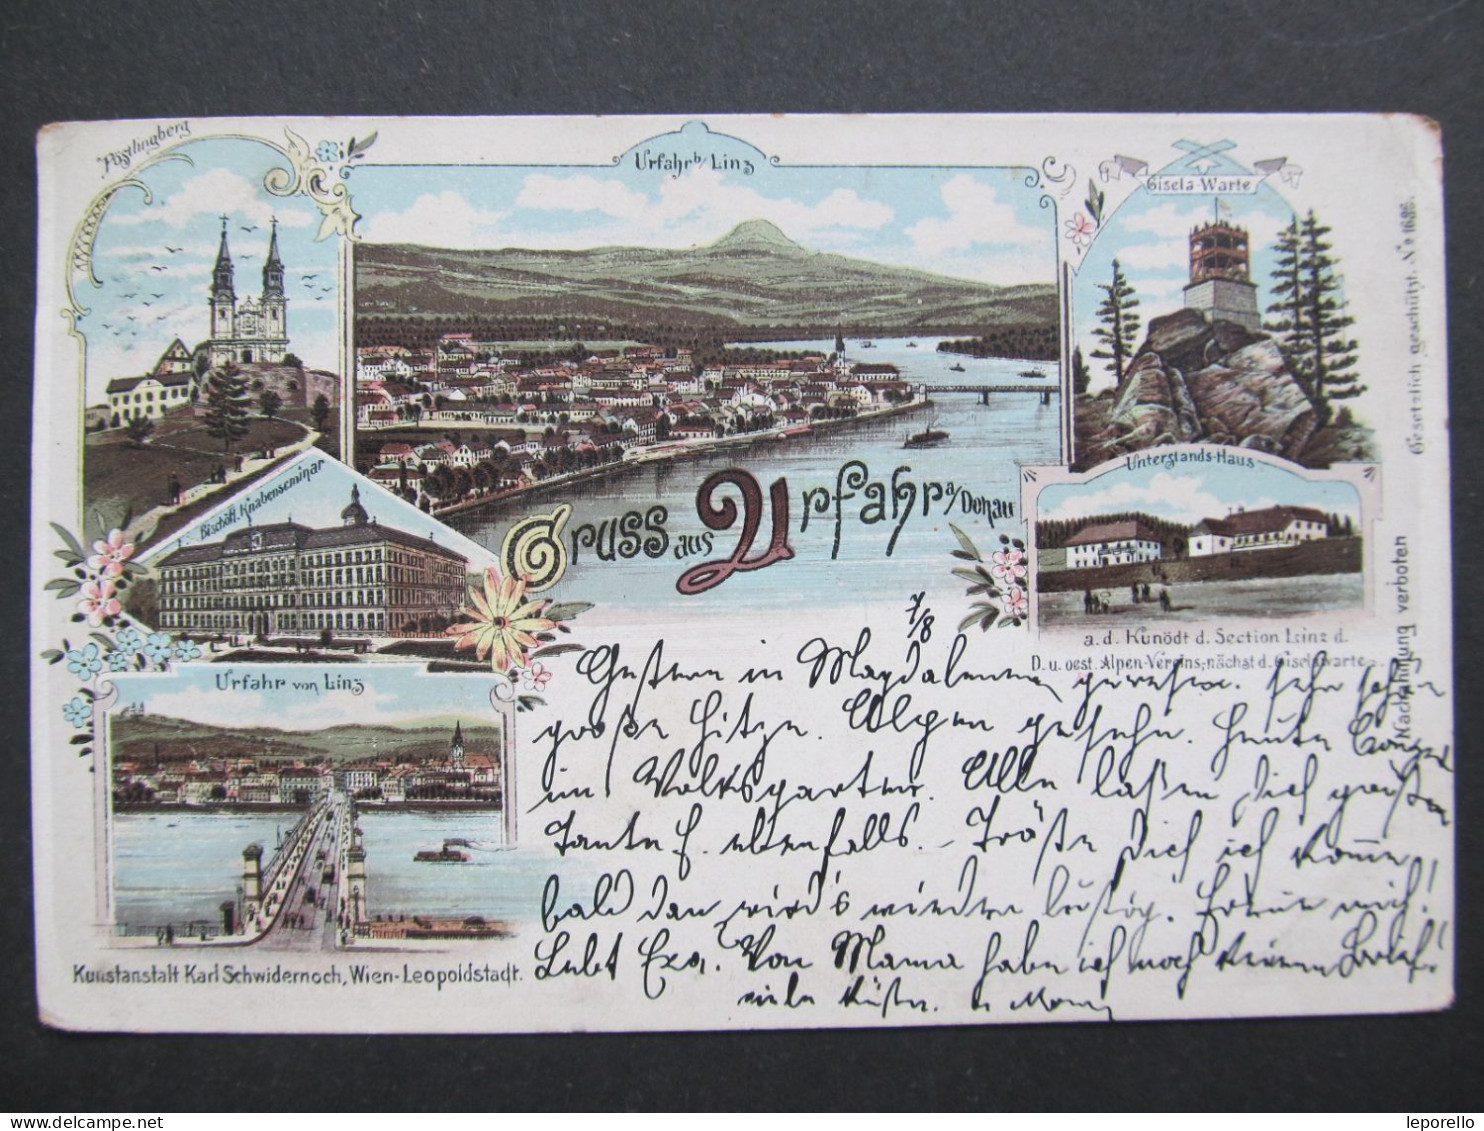 Pöstlingberg
Urfahr b/ Linz
Gisela-Warte
Gesetzlich geschützt. No 1686.
Bischöfl. Knabenseminar
Gruss aus Urfahr a/Donau
Unterstands-Haus
a. d. Kunödt d. Section Linz d.
D. u. oest. Alpen-Vereins, nächst d. Giselawarte
Nachahmung verboten
Urfahr von Linz
Kunstanstalt Karl Schwidernoch, Wien-Leopoldstadt.
7/8
Gestern in Magdalena gewesen. sehr schön
große Hitze. Alpen gesehn. Heute
im Volksgarten. Alle laßen Dich grüßen
Tante F. ebenfalls. Tröste Dich ich komme
bald dan wird's wieder lustig. Freue mich!
Lebt Von Mama habe ich noch keinen Brief!
viele Küße.
leporello